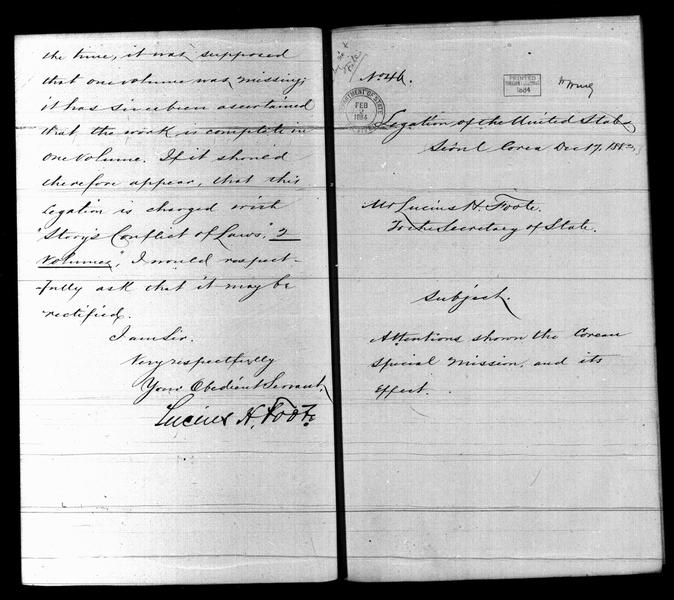 the time, it was supposed
that one volume was missing;
it has since been ascertained
that the work is complete in
one Volume. If it should
therefore appear, that this
Legation is charged with
"Story's Conflict of Laws," 2
Volumes", I would respect-
-fully ask that it may be
rectified.
I am Sir.
Very respectfully
Your Obedient Servant,
Lucius H. Foote
No. 46.
DEPARTMENT OF STATE
FEB
2
1884
PRINTED
1884
Legation of the United States
Séoul Corea Dec 17, 1883,
Mr Lucius H. Foote.
To the Secretary of State.
Subject.
Attentions shown the Corean
Special Mission, and its
Effect.